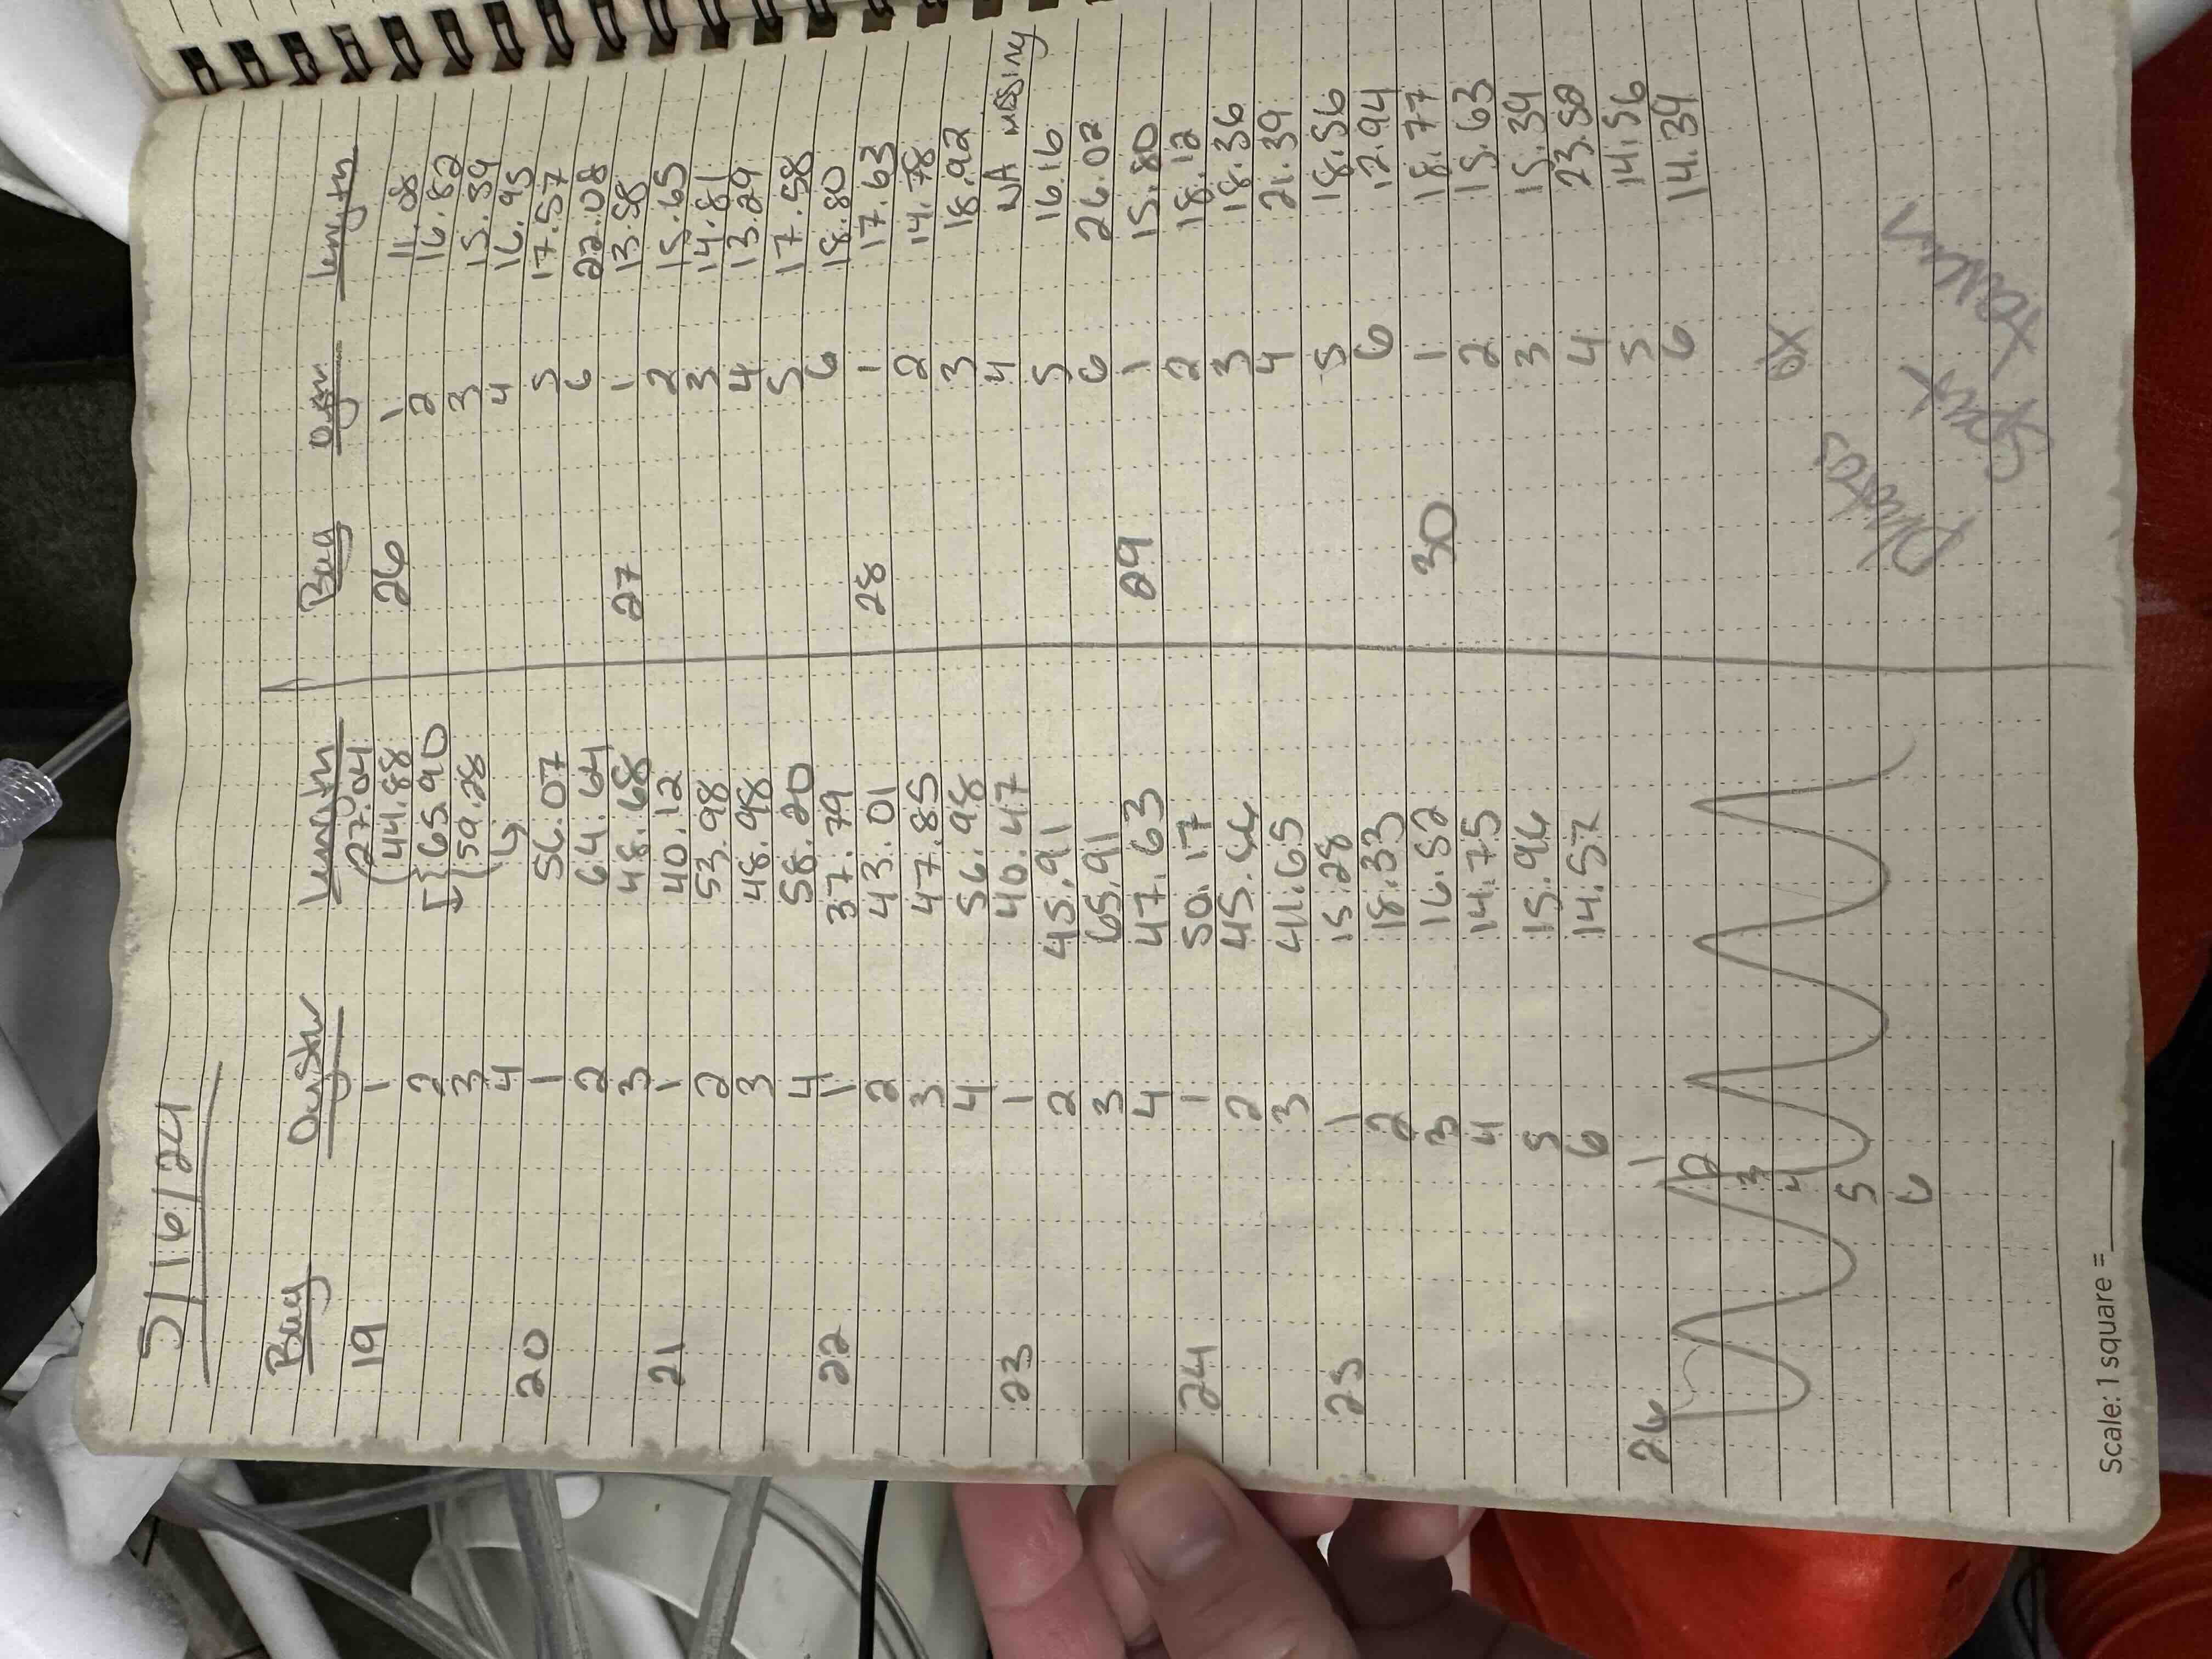 5/16/24
Bag Oyster Length
19 1 (27.04
2 (44.88
3 (65.90
4 (59.28
20 1 56.07
2 64.64
3 48.68
21 1 40.12
2 53.98
3 48.98
4 58.20
22 1 37.79
2 43.01
3 47.85
4 56.98
23 1 40.47
2 45.91
3 65.91
4 47.63
24 1 50.17
2
3 41.65
25 1 15.28
2 18.33
3 16.52
4 14.75
5 15.96
6 14.57
26 1
2
3
4
5
6
Bag Oyster Length
26 1 11.08
2 16.82
3 15.59
4 16.95
5 17.57
6 22.08
27 1 13.58
2 15.65
3 14.81
4 13.29
5 17.58
6 18.80
28 1 17.63
2 14.78
3 18.92
4 NA missing
5 16.16
6 26.02
29 1 15.80
2 18.12
3 18.36
4 21.39
5 18.56
6 12.94
30 1 18.77
2 15.63
3 15.39
4 23.52
5 14.56
6 14.39
photos
spat
taken
Scale: 1 square = ______